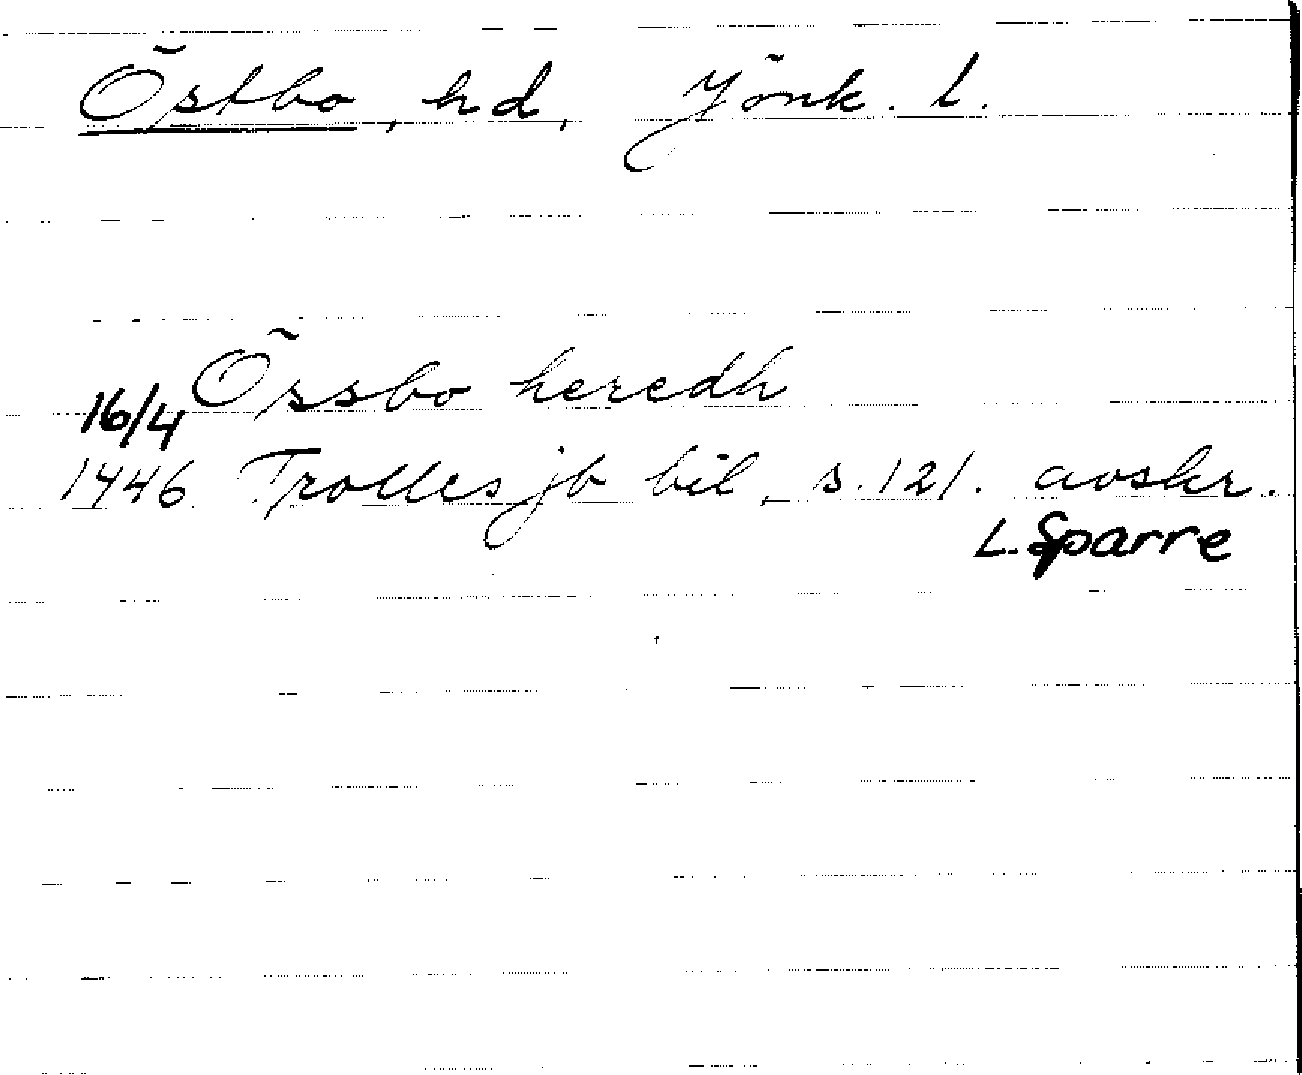 Östbo, hd, Jönk. l.
Össbo heredh
16/4
1446 Trolles jb bil, s. 121. avskr.
L. Sparre